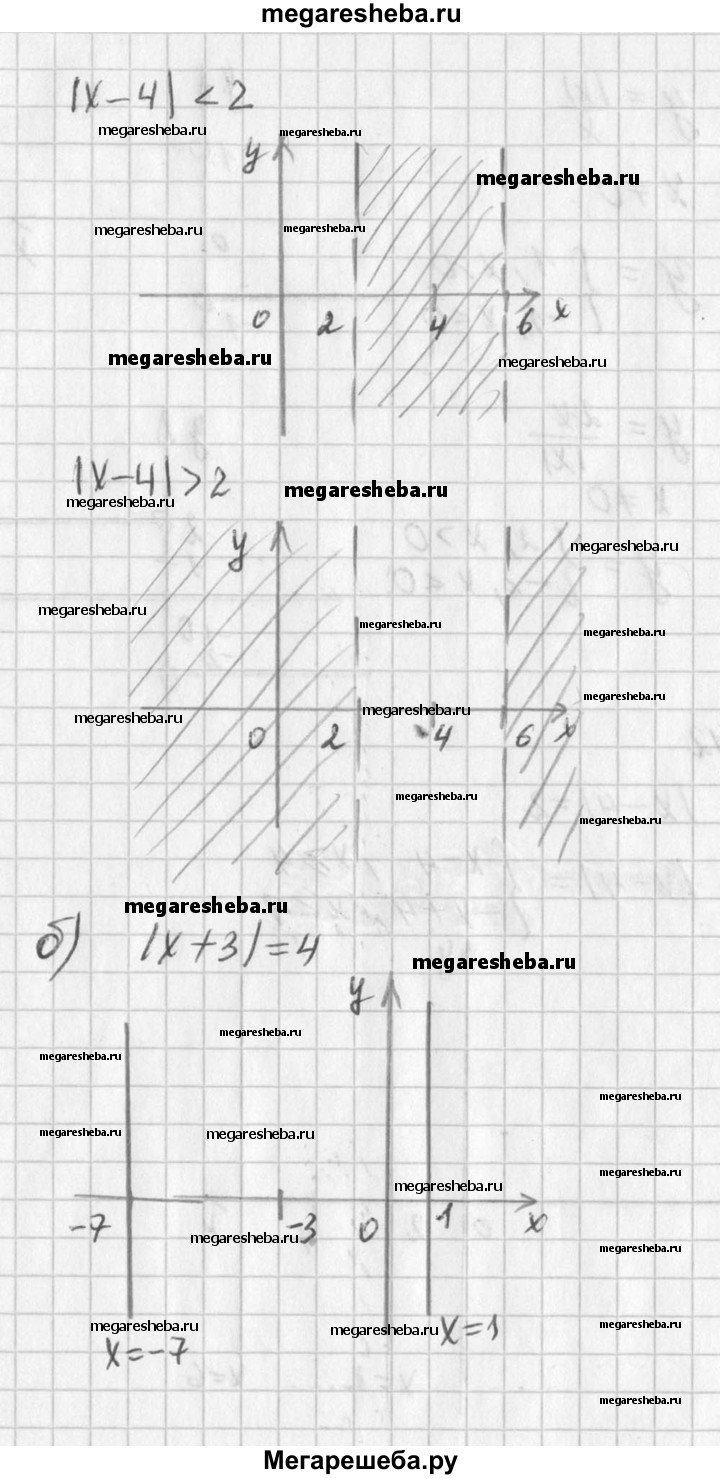 megaresheba.ru
|x-4| < 2
megaresheba.ru
megaresheba.ru
y
megaresheba.ru
megaresheba.ru
megaresheba.ru
0 2 4 6 x
megaresheba.ru
megaresheba.ru
|x-4| > 2
megaresheba.ru
megaresheba.ru
y
megaresheba.ru
megaresheba.ru
megaresheba.ru
megaresheba.ru
megaresheba.ru
megaresheba.ru
megaresheba.ru
0 2 4 6 x
megaresheba.ru
megaresheba.ru
megaresheba.ru
б) |x+3| = 4
megaresheba.ru
y
megaresheba.ru
megaresheba.ru
megaresheba.ru
megaresheba.ru
megaresheba.ru
megaresheba.ru
megaresheba.ru
-7 -3 0 1 x
megaresheba.ru
megaresheba.ru
megaresheba.ru
megaresheba.ru
megaresheba.ru
x=-7 x=1
megaresheba.ru
megaresheba.ru
Мегарешеба.ру